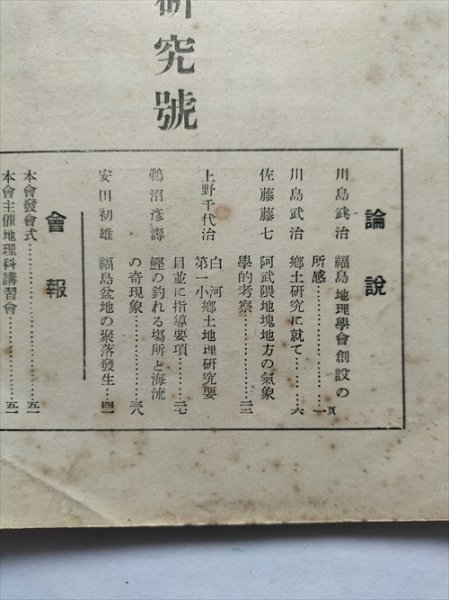 研究號
論說
川島武治 福島地理學會創設の
所感………………一頁
川島武治 鄉土研究に就て………六
佐藤藤七 阿武隈地塊地方の氣象
學的考察………………一三
上野千代治 白河第一小鄉土地理研究要
目並に指導要項………二七
鵜沼彥壽 鰹の釣れる場所と海流
の奇現象………………三八
安田初雄 福島盆地の聚落發生…四一
會報
本會發會式………………五一
本會主催地理科講習會………五一